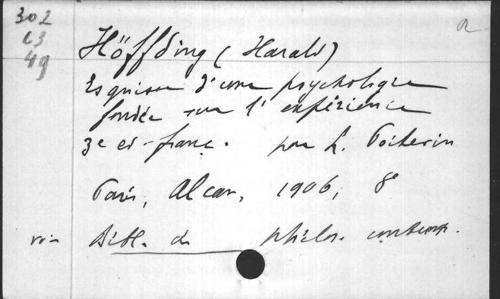 302
C3
49
a
Höffding (Harald)
Esquisse d'une psychologie
fondée sur l'expérience
3e ed. franç. par L. Poitevin
Paris, Alcan, 1906, 8°
Bibl. de philos. contemp.